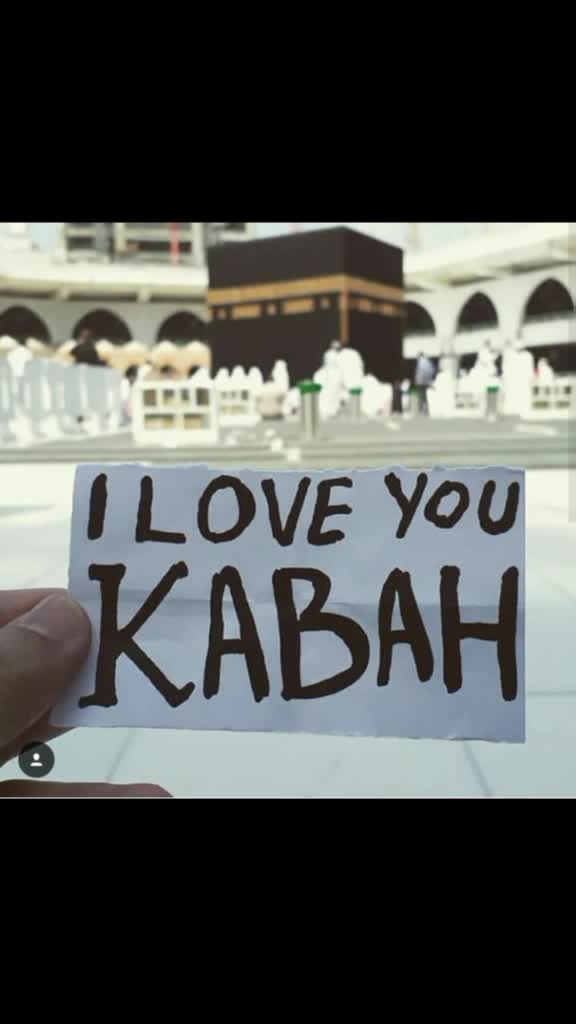 I LOVE YOU
KABAH